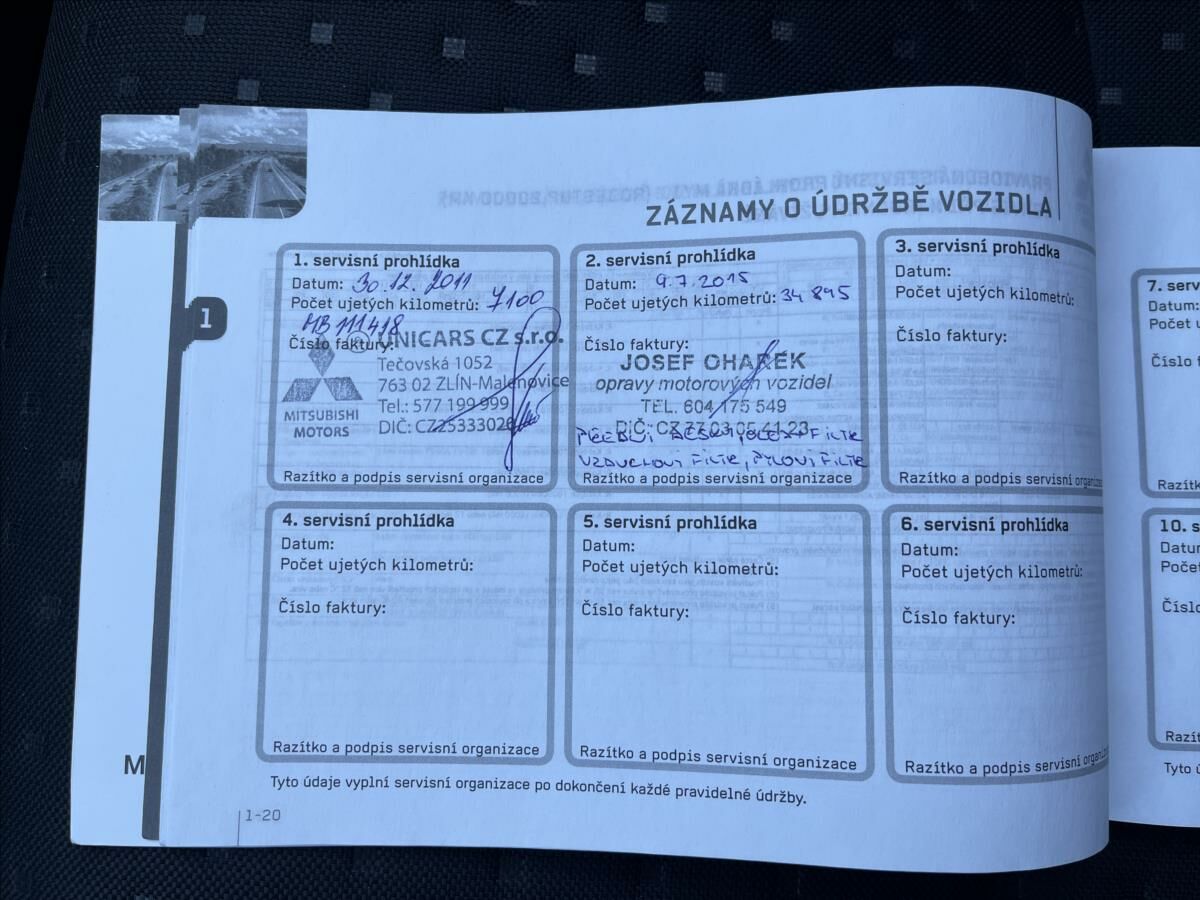 ZÁZNAMY O ÚDRŽBĚ VOZIDLA
1
1. servisní prohlídka
Datum: 30.12.2011
Počet ujetých kilometrů: 7100
MB 111418
Číslo faktury:
UNICARS CZ s.r.o.
Tečovská 1052
763 02 ZLÍN-Malenovice
Tel.: 577 199 999
DIČ: CZ25333020
MITSUBISHI
MOTORS
Razítko a podpis servisní organizace
2. servisní prohlídka
Datum: 9.7.2015
Počet ujetých kilometrů: 34 895
Číslo faktury:
JOSEF OHAREK
opravy motorových vozidel
TEL. 604 175 549
DIČ: CZ 77 03 05 41 23
FILTR
VZDUCHOVÍ FILTR, PYLOVÍ FILTR
Razítko a podpis servisní organizace
3. servisní prohlídka
Datum:
Počet ujetých kilometrů:
Číslo faktury:
Razítko a podpis servisní organizac
4. servisní prohlídka
Datum:
Počet ujetých kilometrů:
Číslo faktury:
Razítko a podpis servisní organizace
5. servisní prohlídka
Datum:
Počet ujetých kilometrů:
Číslo faktury:
Razítko a podpis servisní organizace
6. servisní prohlídka
Datum:
Počet ujetých kilometrů:
Číslo faktury:
Razítko a podpis servisní organi
Tyto údaje vyplní servisní organizace po dokončení každé pravidelné údržby.
1-20
M
7. serv
Datum:
Počet u
Číslo f
Razítk
10. s
Datu
Poče
Číslo
Razít
Tyto ú